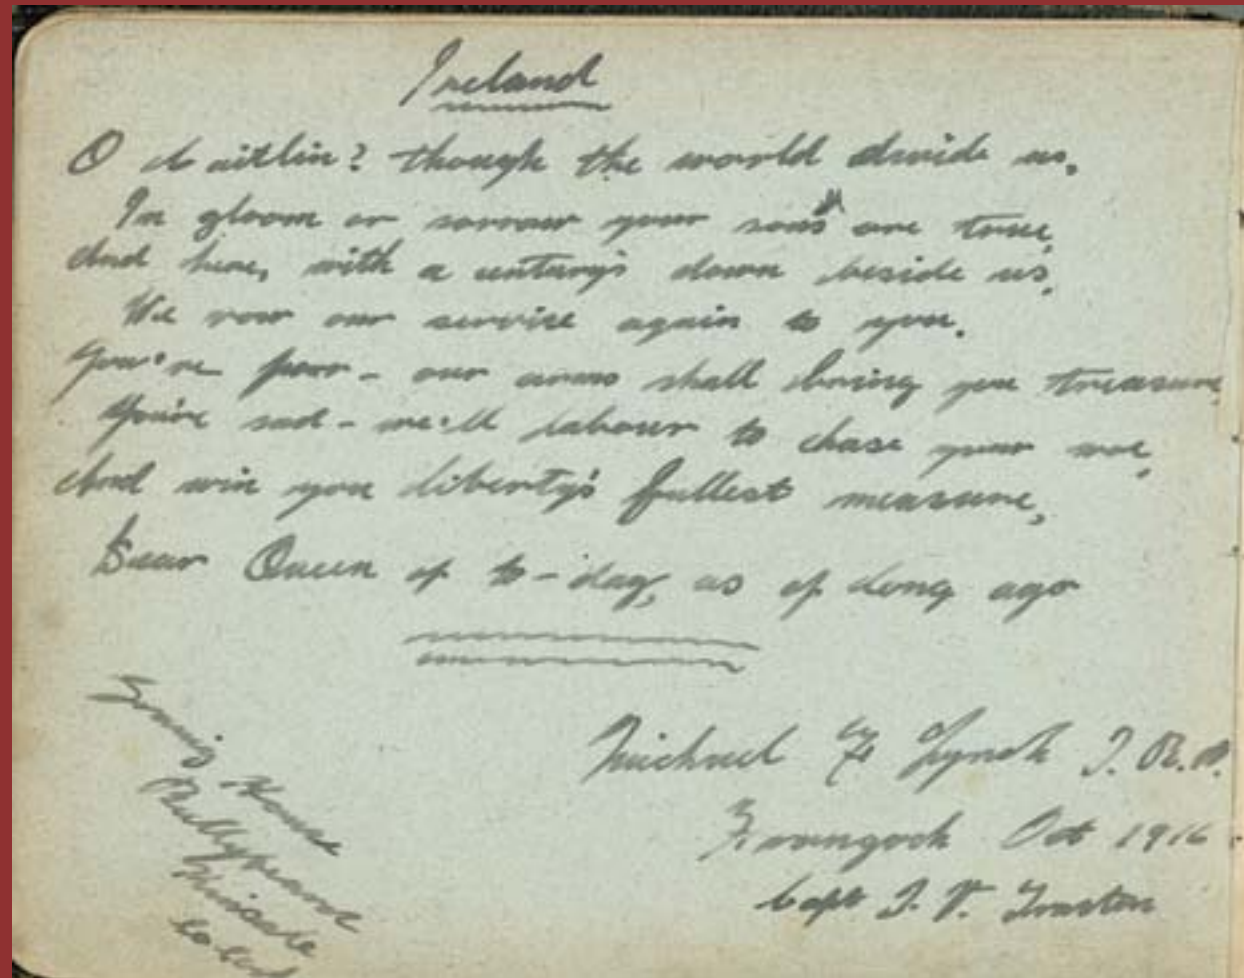 Ireland
O Caitlin? though the world divide us,
In gloom or sorrow your sons are true,
And here, with a century's dawn beside us,
We vow our service again to you.
You're poor - our arms shall bring you treasure,
You're sad - we'll labour to chase your woe,
And win you liberty's fullest measure,
Dear Queen of to-day, as of long ago
Michael F Lynch I.R.A.
Frongoch Oct 1916
Capt I. V. Tracton
House